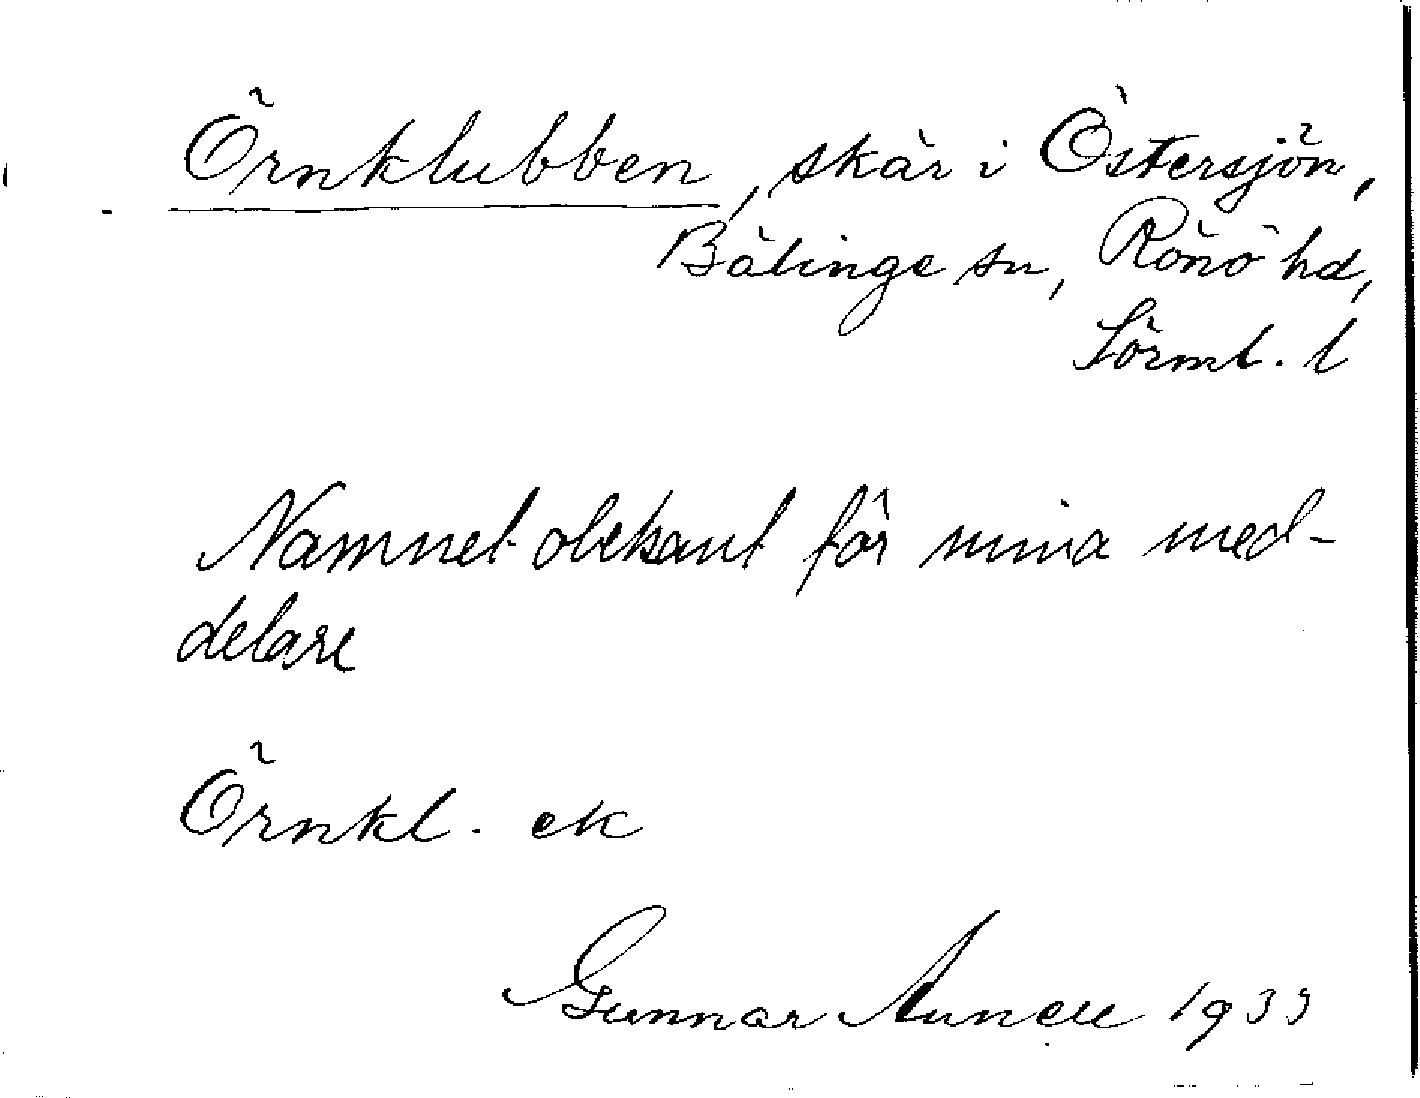 Örnklubben, skär i Östersjön,
Bälinge sn, Rönö hd,
Sörml. l
Namnet obekant för mina med-
delare
Örnkl. ek
Gunnar 193